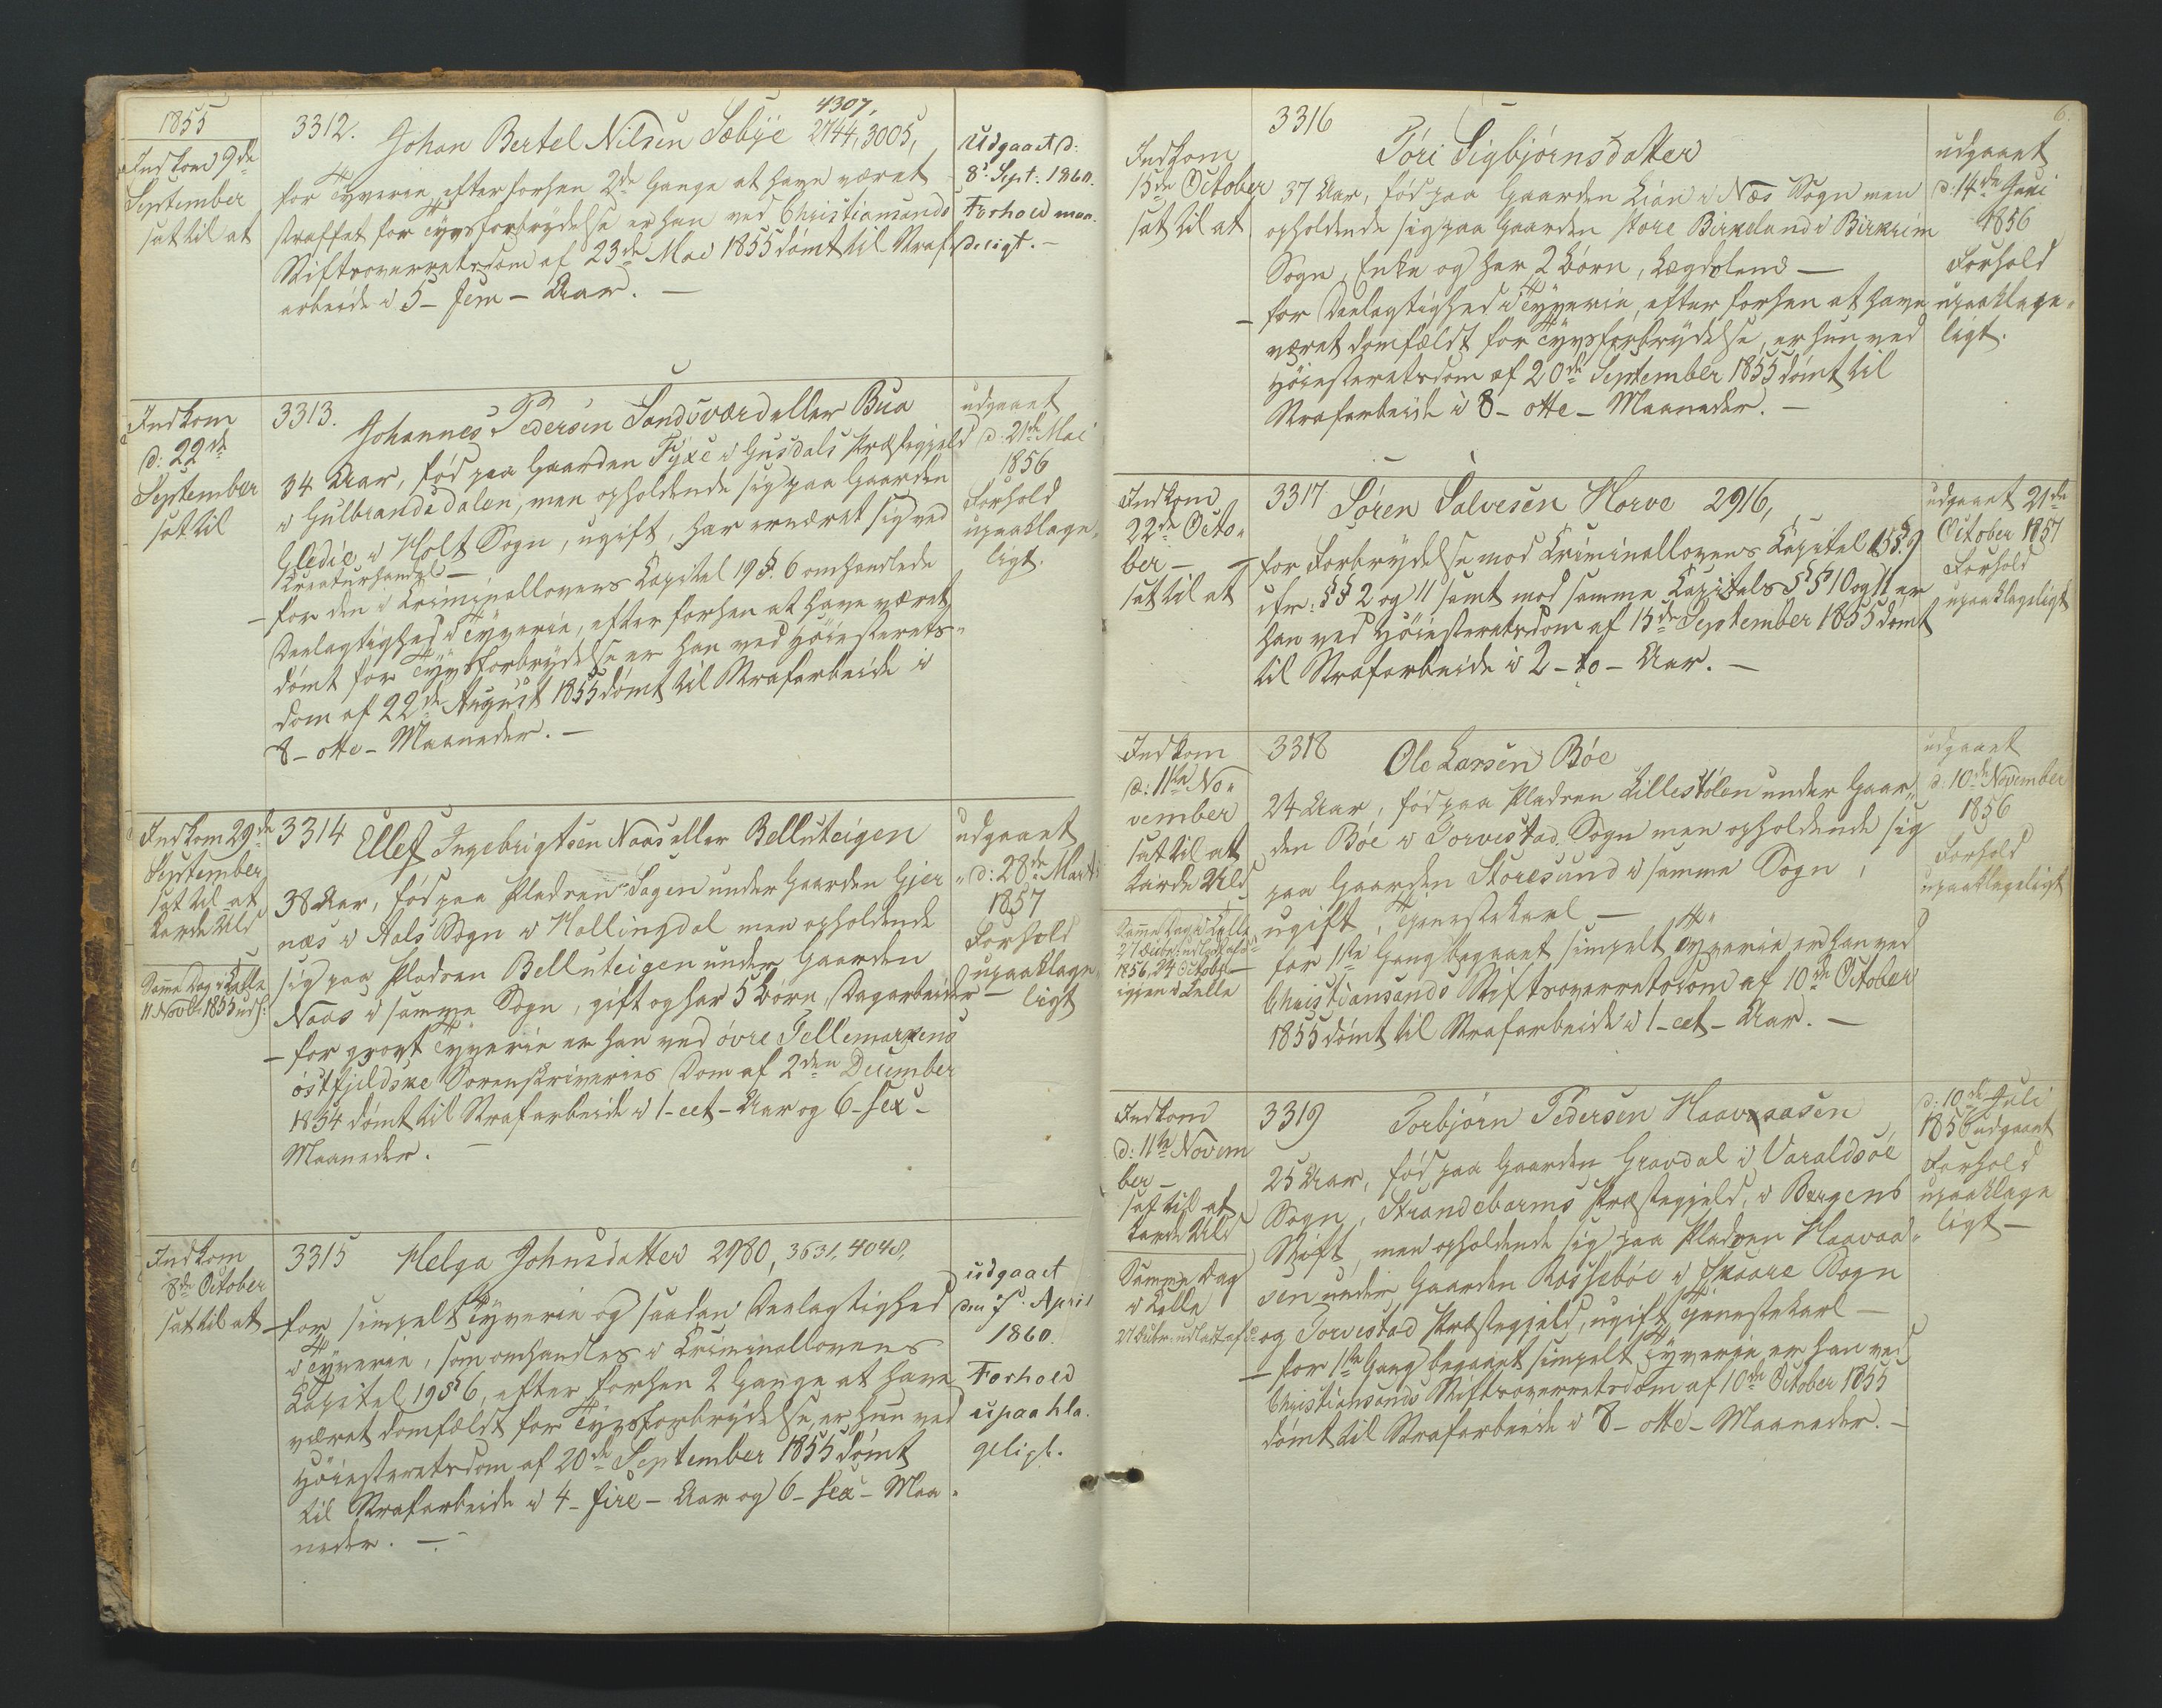 1855
Indkom 9de
September
sat til at
3312. Johan Bertel Nilsen Sæbye 2744, 3005,
4307,
for Tyverie efter forhen 2de Gange at have været
straffet for Tyvsforbrydelse er han ved Christiansands
Stiftsoverretsdom af 23de Mai 1855 dömt til Straf
arbeide i 5 - fem - Aar. -
Udgaaet d:
8de Sept: 1860.
Forhold maa-
deligt. -
Indkom
d: 22de
September
sat til
3313. Johannes Pedersen Sandsværd eller Bua
34 Aar, föd paa Gaarden Fyxe i Gusdals Præstegjeld
i Gulbrandsdalen, men opholdende sig paa Gaarden
Gledie i Holt Sogn, ugift, har ernæret sig ved
Kreaturhandel -
- for den i Criminallovens Capitel 19 §. 6 omhandlede
Deelagtighed i Tyverie, efter forhen at have været
dömt for Tyvsforbrydelse er han ved Höiesterets-
dom af 22de August 1855 dömt til Strafarbeide i
8 - otte - Maaneder. -
udgaaet
d: 21de Mai
1856
Forhold
upaaklage-
ligt.
Indkom 29de
September
sat til at
karde Uld
Samme Dag i Celle
11 Novbr 1855 uds:
3314 Ellef Ingebrigtsen Naas eller Belluteigen
38 Aar, föd paa Pladsen Sagen under Gaarden Gjer-
næs i Aals Sogn i Hallingdal men opholdende
sig paa Pladsen Belluteigen under Gaarden
Naas i samme Sogn, gift og har 5 Börn, Dagarbeider -
- for grovt Tyverie er han ved övre Tellemarkens
östfjeldske Sorenskriveries Dom af 2den December
1854 dömt til Strafarbeide i 1 - eet - Aar og 6 - sex -
Maaneder. -
udgaaet
d: 28de Marts
1857
Forhold
upaaklage-
ligt
Indkom
8de October
sat til at
3315 Helga Johnsdatter 2980, 3631, 4048.
- for simpelt Tyverie og saadan Deelagtighed
i Tyverie, som omhandles i Criminallovens
Capitel 19 § 6, efter forhen 2 Gange at have
været domfældt for Tyvsforbrydelse, er hun ved
Höiesteretsdom af 20de September 1855 dömt
til Strafarbeide i 4 - fire - Aar og 6 - sex - Maa-
neder. -
udgaaet
den April
1860.
Forhold
upaakla-
geligt.
6.
Indkom
15de October
sat til at
3316
Töri Sigbjörnsdatter
37 Aar, föd paa Gaarden Lian i Næs Sogn men
opholdende sig paa Gaarden store Birkeland i Birkrim
Sogn, Enke og har 2 Börn, Lægdslem -
- for Deelagtighed i Tyverie, efter forhen at have
været domfældt for Tyvsforbrydelse, er hun ved
Höiesteretsdom af 20de September 1855 dömt til
Strafarbeide i 8 - otte - Maaneder. -
udgaaet
d: 14de Juni
1856
Forhold
upaaklage-
ligt.
Indkom
22de Octo-
ber -
sat til at
3317 Sören Salvesen Horve 2916,
- for Forbrydelse mod Criminallovens Capitel 15 §. 9
cfr: §§ 2 og 11 samt mod samme Capitels §§ 10 og 11 er
han ved Höiesteretsdom af 15de September 1855 dömt
til Strafarbeide i 2 - to - Aar. -
udgaaet 21de
October 1857
Forhold
upaaklageligt
Indkom
d: 11te No-
vember
sat til at
karde Uld
Samme Dag i Celle
27 Decbr: udladt af do
1856, 24 Octobr
igjen i Celle
3318 Ole Larsen Böe
24 Aar, föd paa Pladsen Lillestölen under Gaar-
den Böe i Torvestad Sogn men opholdende sig
paa Gaarden Storesund i samme Sogn,
ugift, Tjenestekarl -
- for 1ste Gang begaaet simpelt Tyverie er han ved
Christiansands Stiftsoverretsdom af 10de October
1855 dömt til Strafarbeide i 1 - eet - Aar. -
udgaaet
d: 10de November
1856
Forhold
upaaklageligt
Indkom
d: 11te Novem
ber -
sat til at
karde Uld
Samme Dag
i Celle
27 Decbr: udladt af do
3319 Torbjörn Pedersen Haavaasen
25 Aar, föd paa Gaarden Gravdal i Varaldsöe
Sogn, Strandebarms Præstegjeld, i Bergens
Stift, men opholdende sig paa Pladsen Haavaa-
sen under Gaarden Rosseböe i Skaare Sogn
og Torvestad Præstegjeld, ugift, Tjenestekarl -
- for 1ste Gang begaaet simpelt Tyverie er han ved
Christiansands Stiftsoverretsdom af 10de October 1855
dömt til Strafarbeide i 8 - otte - Maaneder. -
d: 10de Juli
1856 udgaaet
Forhold
upaaklage
ligt -